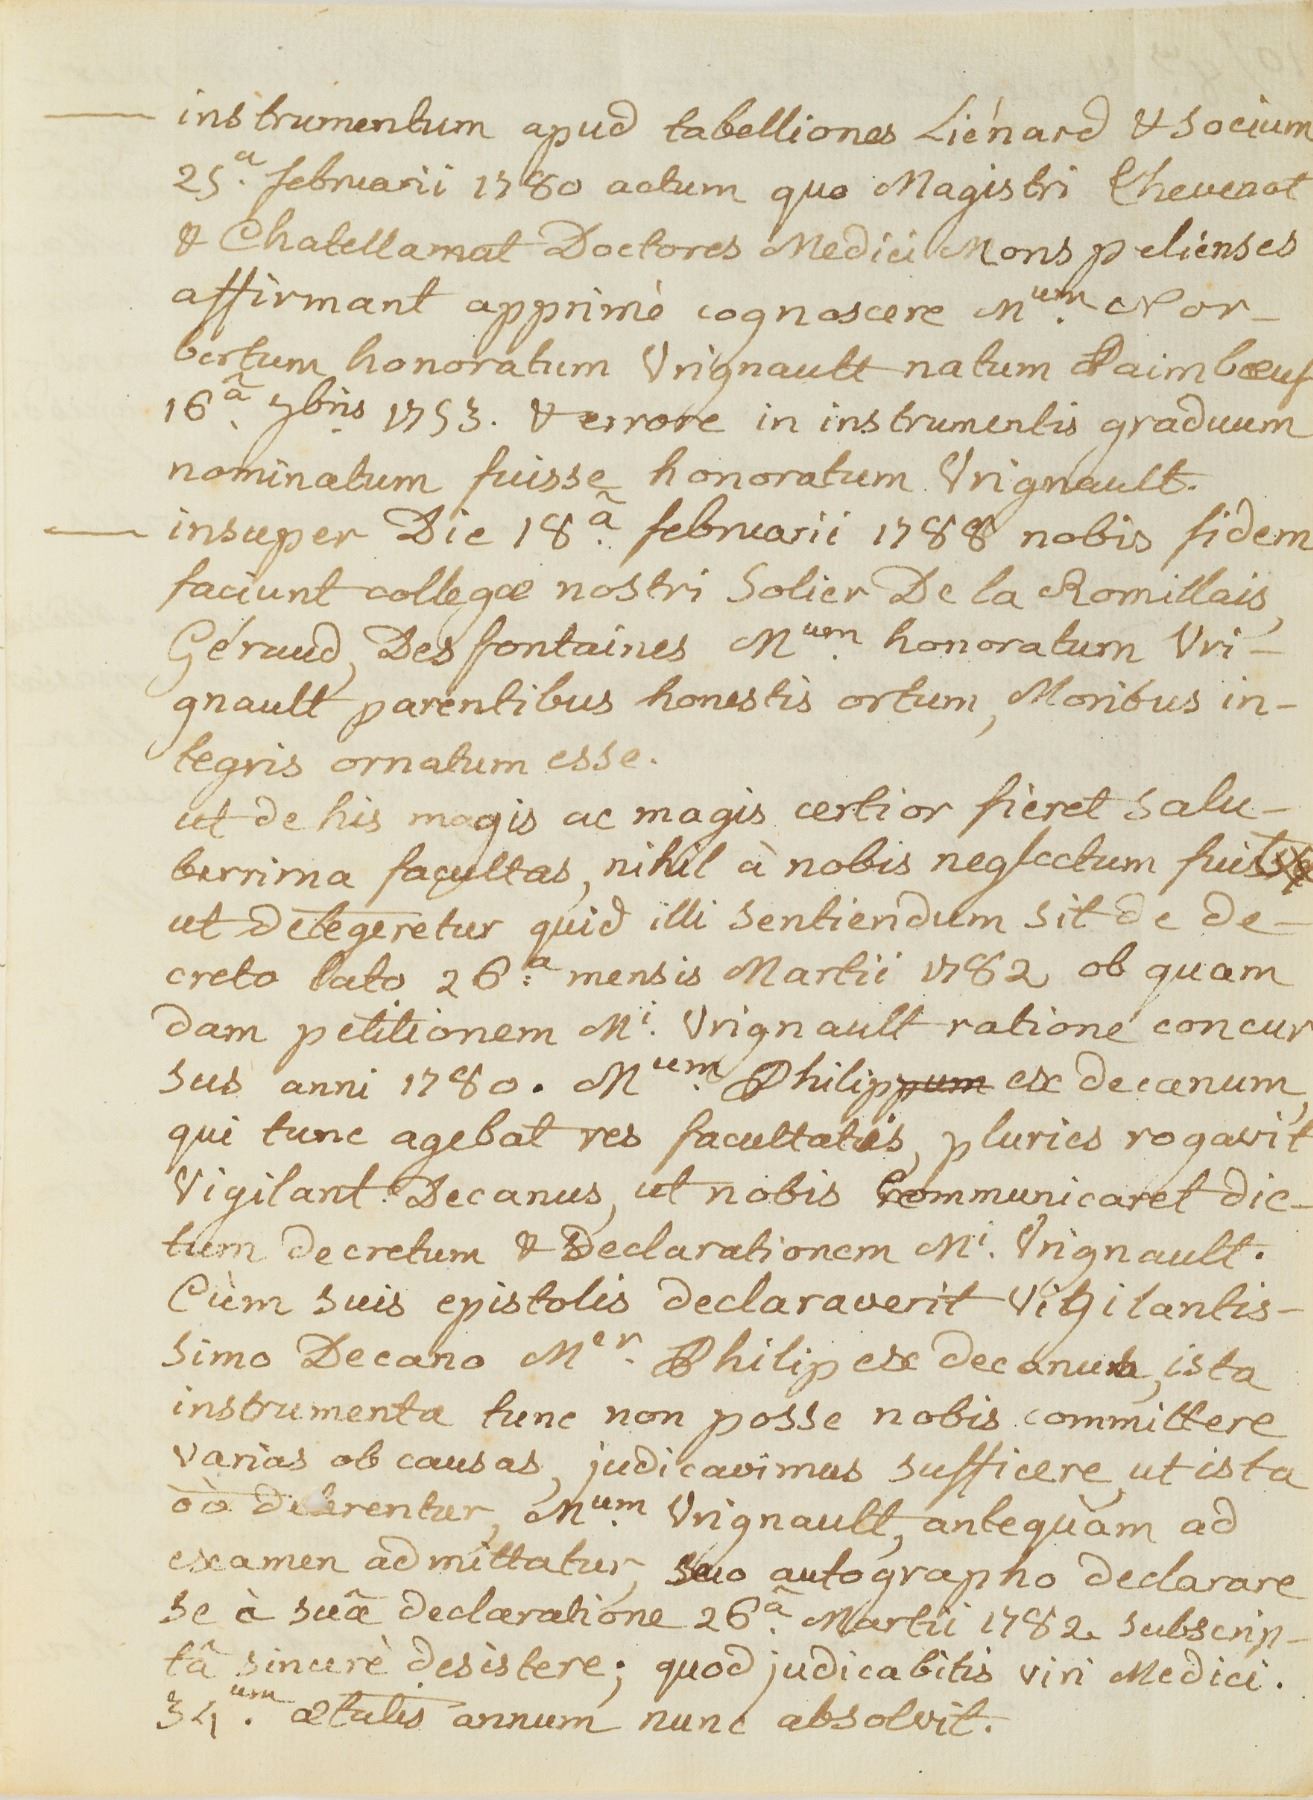 instrumentum apud tabelliones Liénard & Socium
25.ª februarii 1780 actum quo Magistri Thevenot
& Chatellamat Doctores Medici Monspelienses
affirmant apprimè cognoscere M.um Nor-
bertum honoratum Vrignault natum Paimbœuf
16.ã 7bris 1753. & errore in instrumentis graduum
nominatum fuisse honoratum Vrignault.
insuper Die 18.ã februarii 1788 nobis fidem
faciunt collegæ nostri Solier De la Romillais,
Géraud, Des fontaines M.um honoratum Vri-
gnault parentibus honestis ortum, Moribus in-
tegris ornatum esse.
ut de his magis ac magis certior fieret Salu-
berrima facultas, nihil à nobis neglectum fuit
ut detegeretur quid illi sentiendum sit de de-
creto lato 26.ª mensis Martii 1782 ob quam
dam petitionem M.i Vrignault ratione concur
sus anni 1780. M.um Philippum ex decanum,
qui tunc agebat res facultatis, pluries rogavit
Vigilant. Decanus, ut nobis communicaret dic-
tum decretum & Declarationem M.i Vrignault.
Cùm suis epistolis declaraverit Vigilantis-
simo Decano M.er Philip ex decanus, ista
instrumenta tunc non posse nobis committere
varias ob causas, judicavimus sufficere, ut ista
õõ delerentur, M.um Vrignault, antequàm ad
examen admittatur, suo autographo declarare
se à suâ declaratione 26.ã Martii 1782 subscrip-
tâ sincerè desistere; quod judicabitis viri Medici.
34.um ætatis annum nunc absolvit.